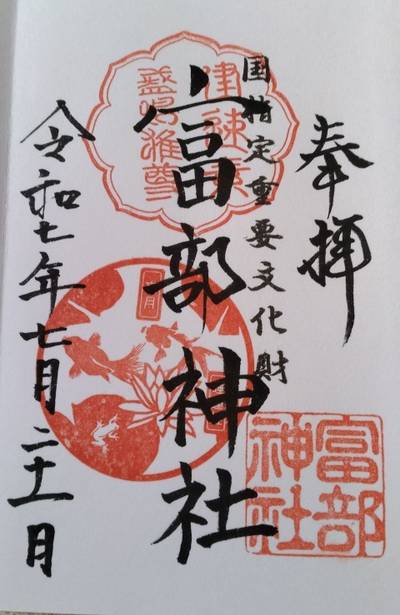 奉拝
国指定重要文化財
富部神社
令和七年七月二十一日
富部
神社